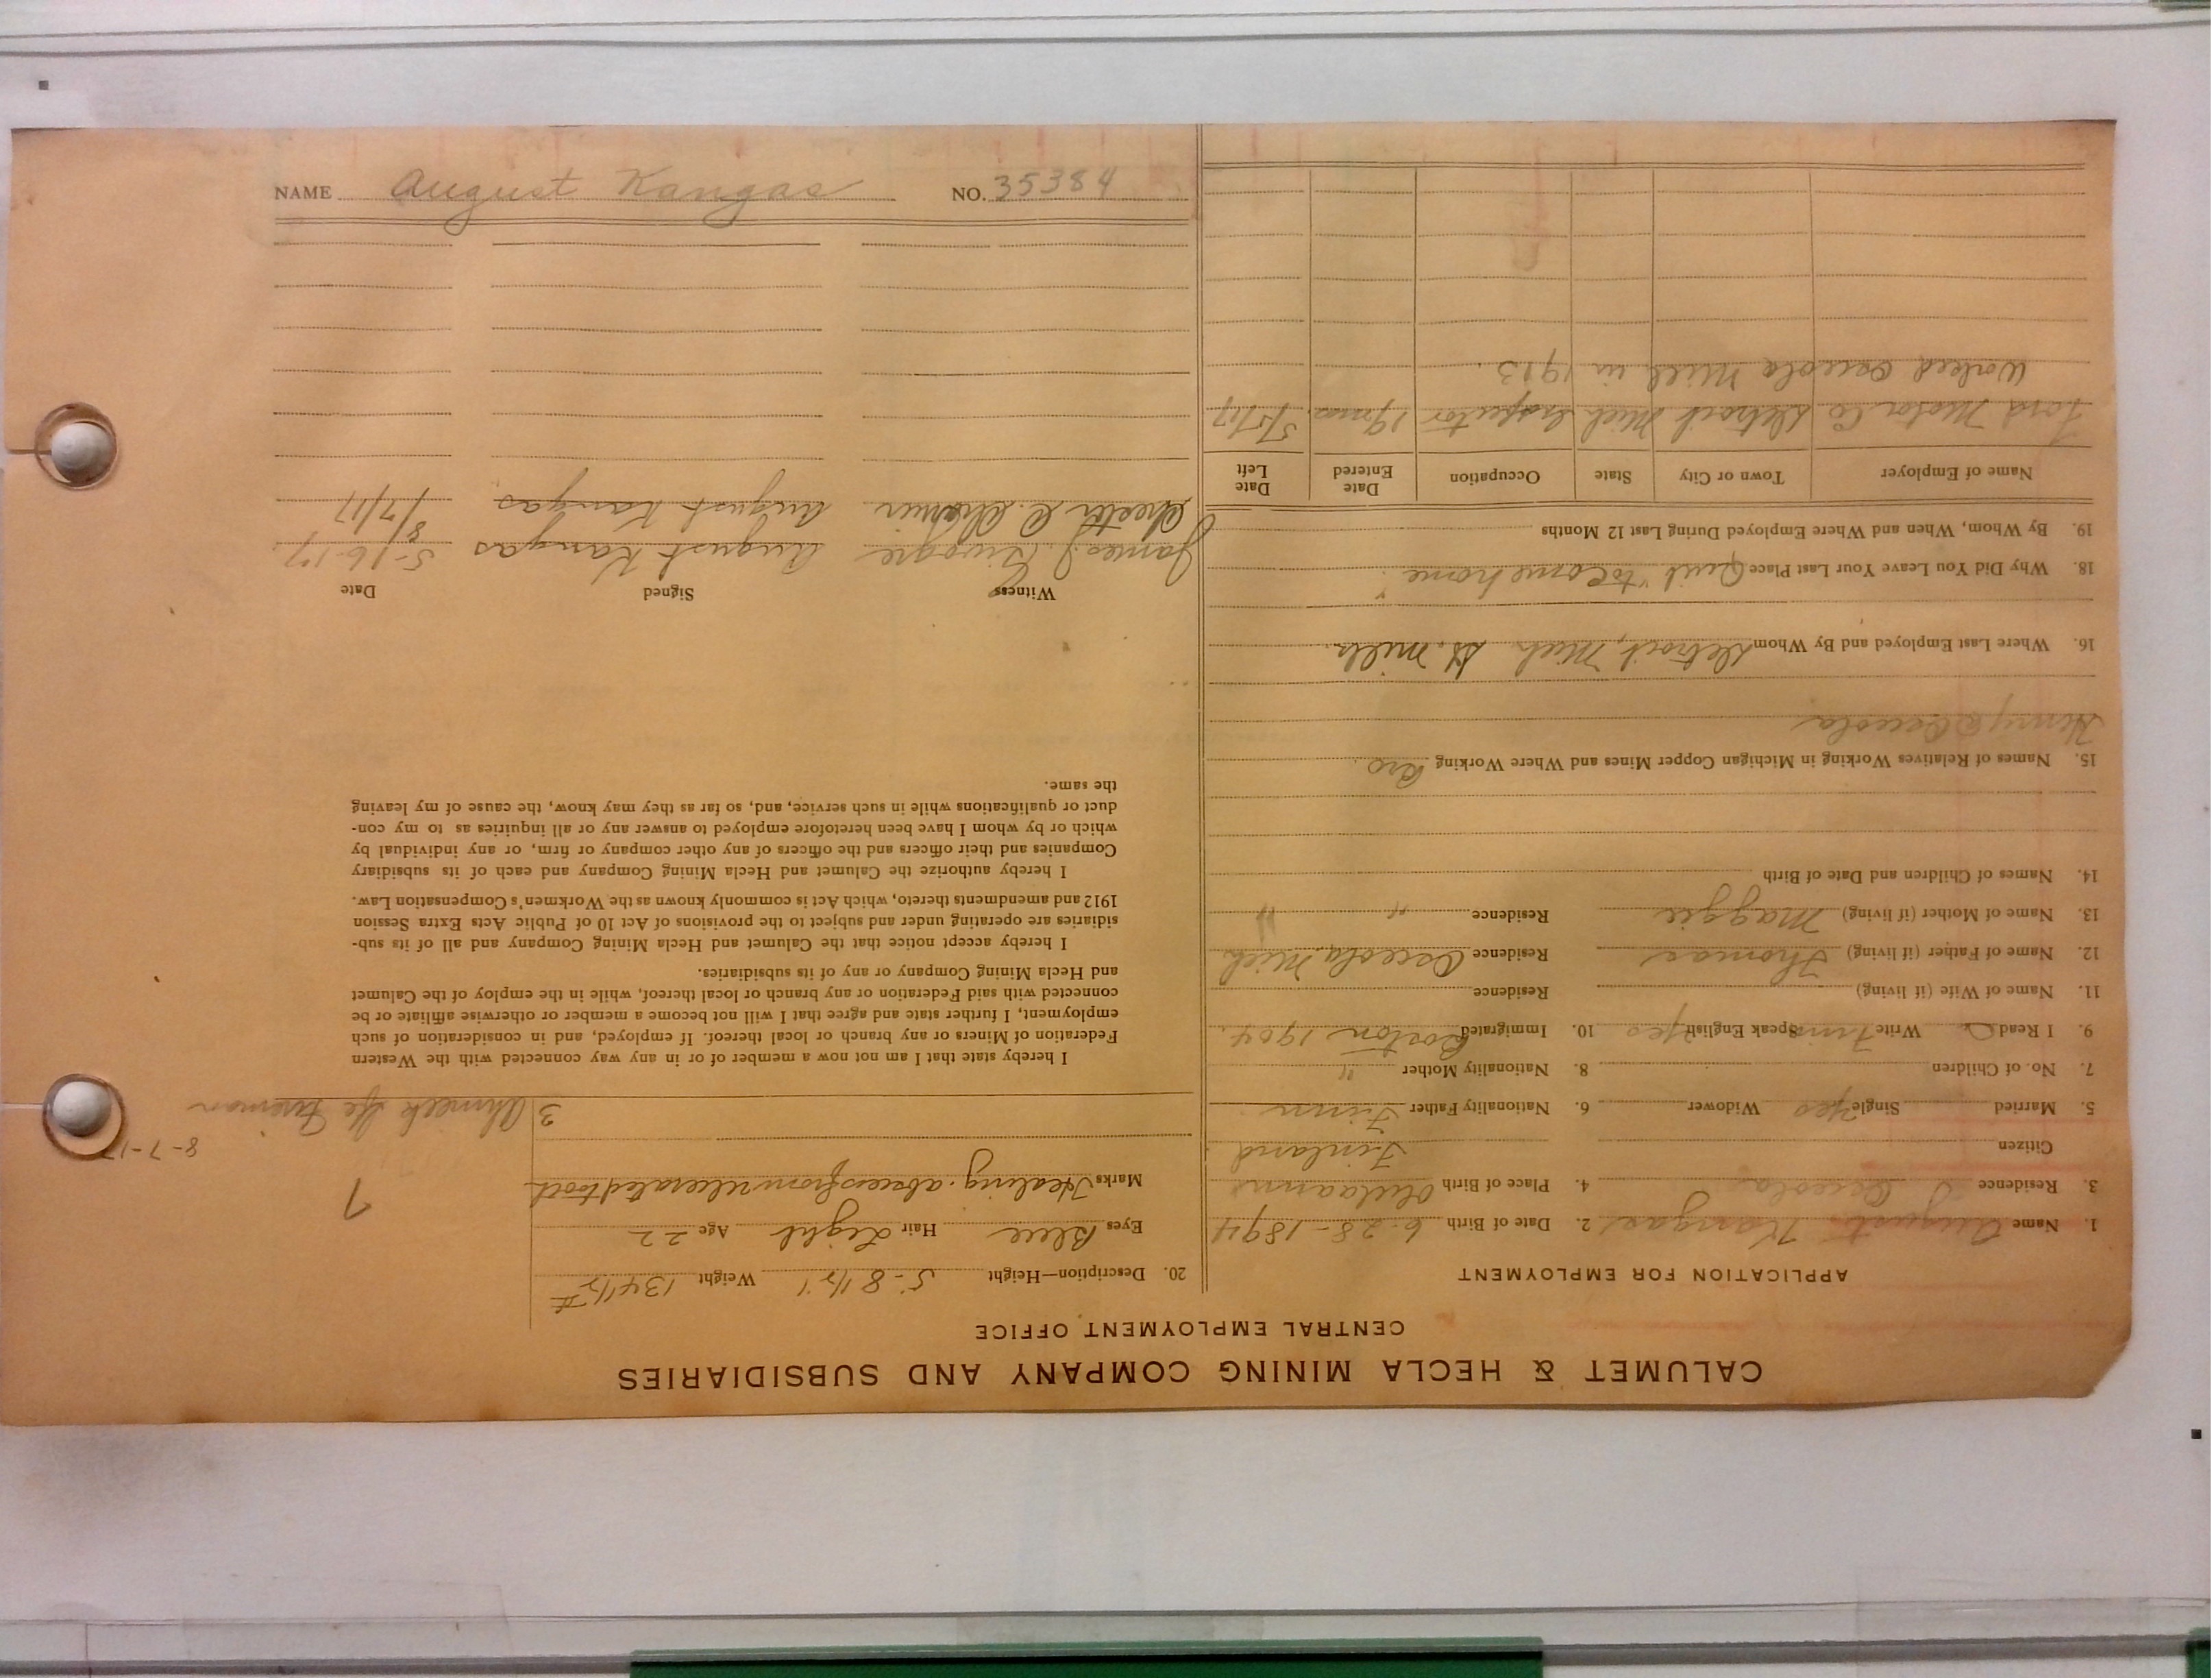 CALUMET & HECLA MINING COMPANY AND SUBSIDIARIES
CENTRAL EMPLOYMENT OFFICE
APPLICATION FOR EMPLOYMENT
1. Name August Kangas 2. Date of Birth 6-28-1894
3. Residence Osceola 4. Place of Birth
Citizen Finland
5. Married Single yes Widower 6. Nationality Father Finn
7. No. of Children 8. Nationality Mother "
9. I Read Write Finn Speak English yes 10. Immigrated Boston 1904.
11. Name of Wife (if living) Residence
12. Name of Father (if living) Thomas Residence Osceola, Mich
13. Name of Mother (if living) Maggie Residence " "
14. Names of Children and Date of Birth
15. Names of Relatives Working in Michigan Copper Mines and Where Working Bro.
Henry @ Osceola
16. Where Last Employed and By Whom Detroit, Mich St. mills.
18. Why Did You Leave Your Last Place Quit "to come home".
19. By Whom, When and Where Employed During Last 12 Months
Name of Employer Town or City State Occupation Date Entered Date Left
Ford Motor Co Detroit Mich Inspector 19 mos 5/5/17
Worked Osceola Mill in 1913.
20. Description—Height 5-8 1/2" Weight 134 1/2 #
Eyes Blue Hair Light Age 22
Marks Healing abscess from ulcerated tooth
3
7
8-7-17
Ahmeek Sfe Fireman
I hereby state that I am not now a member of or in any way connected with the Western
Federation of Miners or any branch or local thereof. If employed, and in consideration of such
employment, I further state and agree that I will not become a member or otherwise affiliate or be
connected with said Federation or any branch or local thereof, while in the employ of the Calumet
and Hecla Mining Company or any of its subsidiaries.
I hereby accept notice that the Calumet and Hecla Mining Company and all of its sub-
sidiaries are operating under and subject to the provisions of Act 10 of Public Acts Extra Session
1912 and amendments thereto, which Act is commonly known as the Workmen's Compensation Law.
I hereby authorize the Calumet and Hecla Mining Company and each of its subsidiary
Companies and their officers and the officers of any other company or firm, or any individual by
which or by whom I have been heretofore employed to answer any or all inquiries as to my con-
duct or qualifications while in such service, and, so far as they may know, the cause of my leaving
the same.
Witness Signed Date
James J. August Kangas 5-16-17.
August Kangas 8/7/17
NAME August Kangas NO. 35384